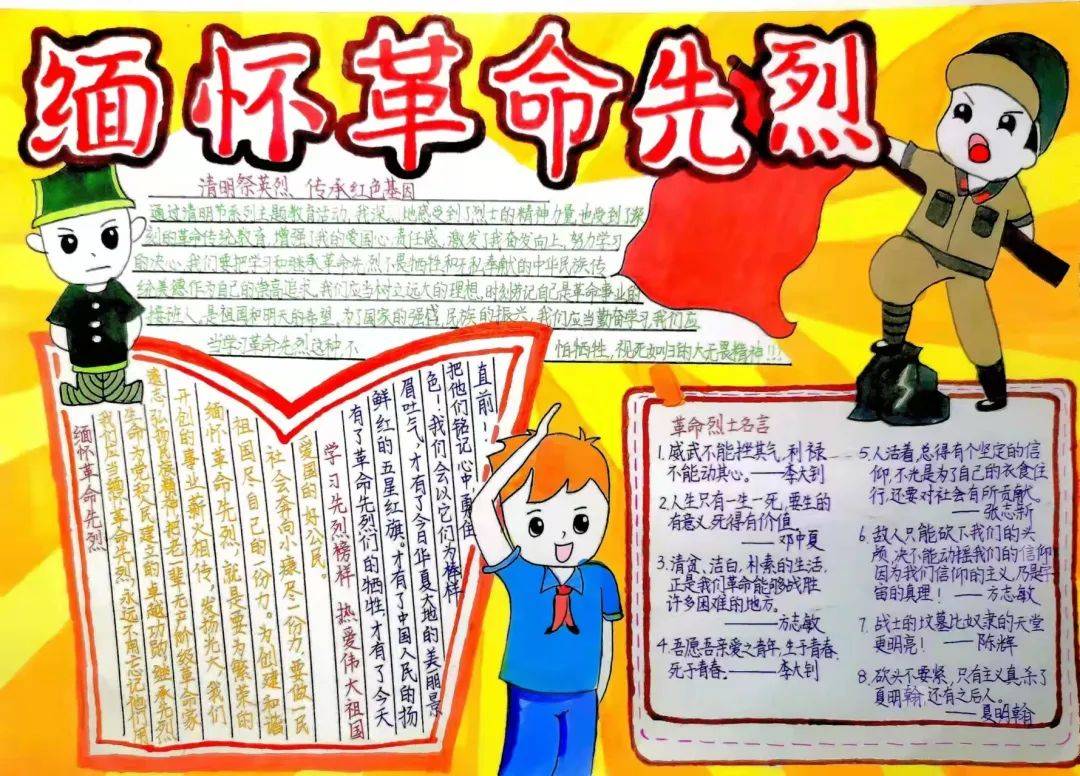 缅怀革命先烈
清明祭英烈 传承红色基因
通过清明节系列主题教育活动,我深、地感受到了烈士的精神力量,也受到了深
刻的革命传统教育,增强了我的爱国心、责任感,激发了我奋发向上、努力学习
的决心。我们要把学习和继承革命先烈不畏牺牲和无私奉献的中华民族传
统美德作为自己的崇高追求。我们应当树立远大的理想,时刻劳记自己是革命事业的
接班人。是祖国和明天的希望。为了国家的强盛,民族的振兴,我们应当勤奋学习,我们应
当学习革命先烈这种不 怕牺牲,视死如归的大无畏精神!!!
缅怀革命先烈
我们应当缅怀革命先烈,永远不用忘记他们用
生命为党和人民建立的卓越功勋,继承先烈
遗志,弘扬民族精神,把老一辈无产阶级革命家
开创的事业薪火相传,发扬光大,我们
缅怀革命先烈,就是要为繁荣的
祖国尽自己的一份力。为创建和谐
社会奔向小康尽一份力,要做一民
爱国的好公民。
学习先烈榜样 热爱伟大祖国
有了革命先烈们的牺牲,才有了今天
鲜红的五星红旗,才有了中国人民的扬
眉吐气,才有了今日华夏大地的美丽景
色!我们会以它们为榜样
把他们铭记心中勇往
直前!
革命烈士名言
1.威武不能挫其气,利禄
不能动其心。——李大钊
2.人生只有一生一死,要生的
有意义,死得有价值。
——邓中夏
3.清贫、洁白,朴素的生活,
正是我们革命能够战胜
许多困难的地方。
——方志敏
4.吾愿吾亲爱之青年,生于青春、
死于青春。——李大钊
5.人活着,总得有个坚定的信
仰,不光是为了自己的衣食住
行,还要对社会有所贡献。
——张志新
6.敌人只能砍下我们的头
颅,决不能动摇我们的信仰
因为我们信仰的主义,乃是宇
宙的真理!——方志敏
7.战士的坟墓比奴隶的天堂
更明亮!——陈辉
8.砍头不要紧,只有主义真,杀了
夏明翰,还有之后人。
——夏明翰